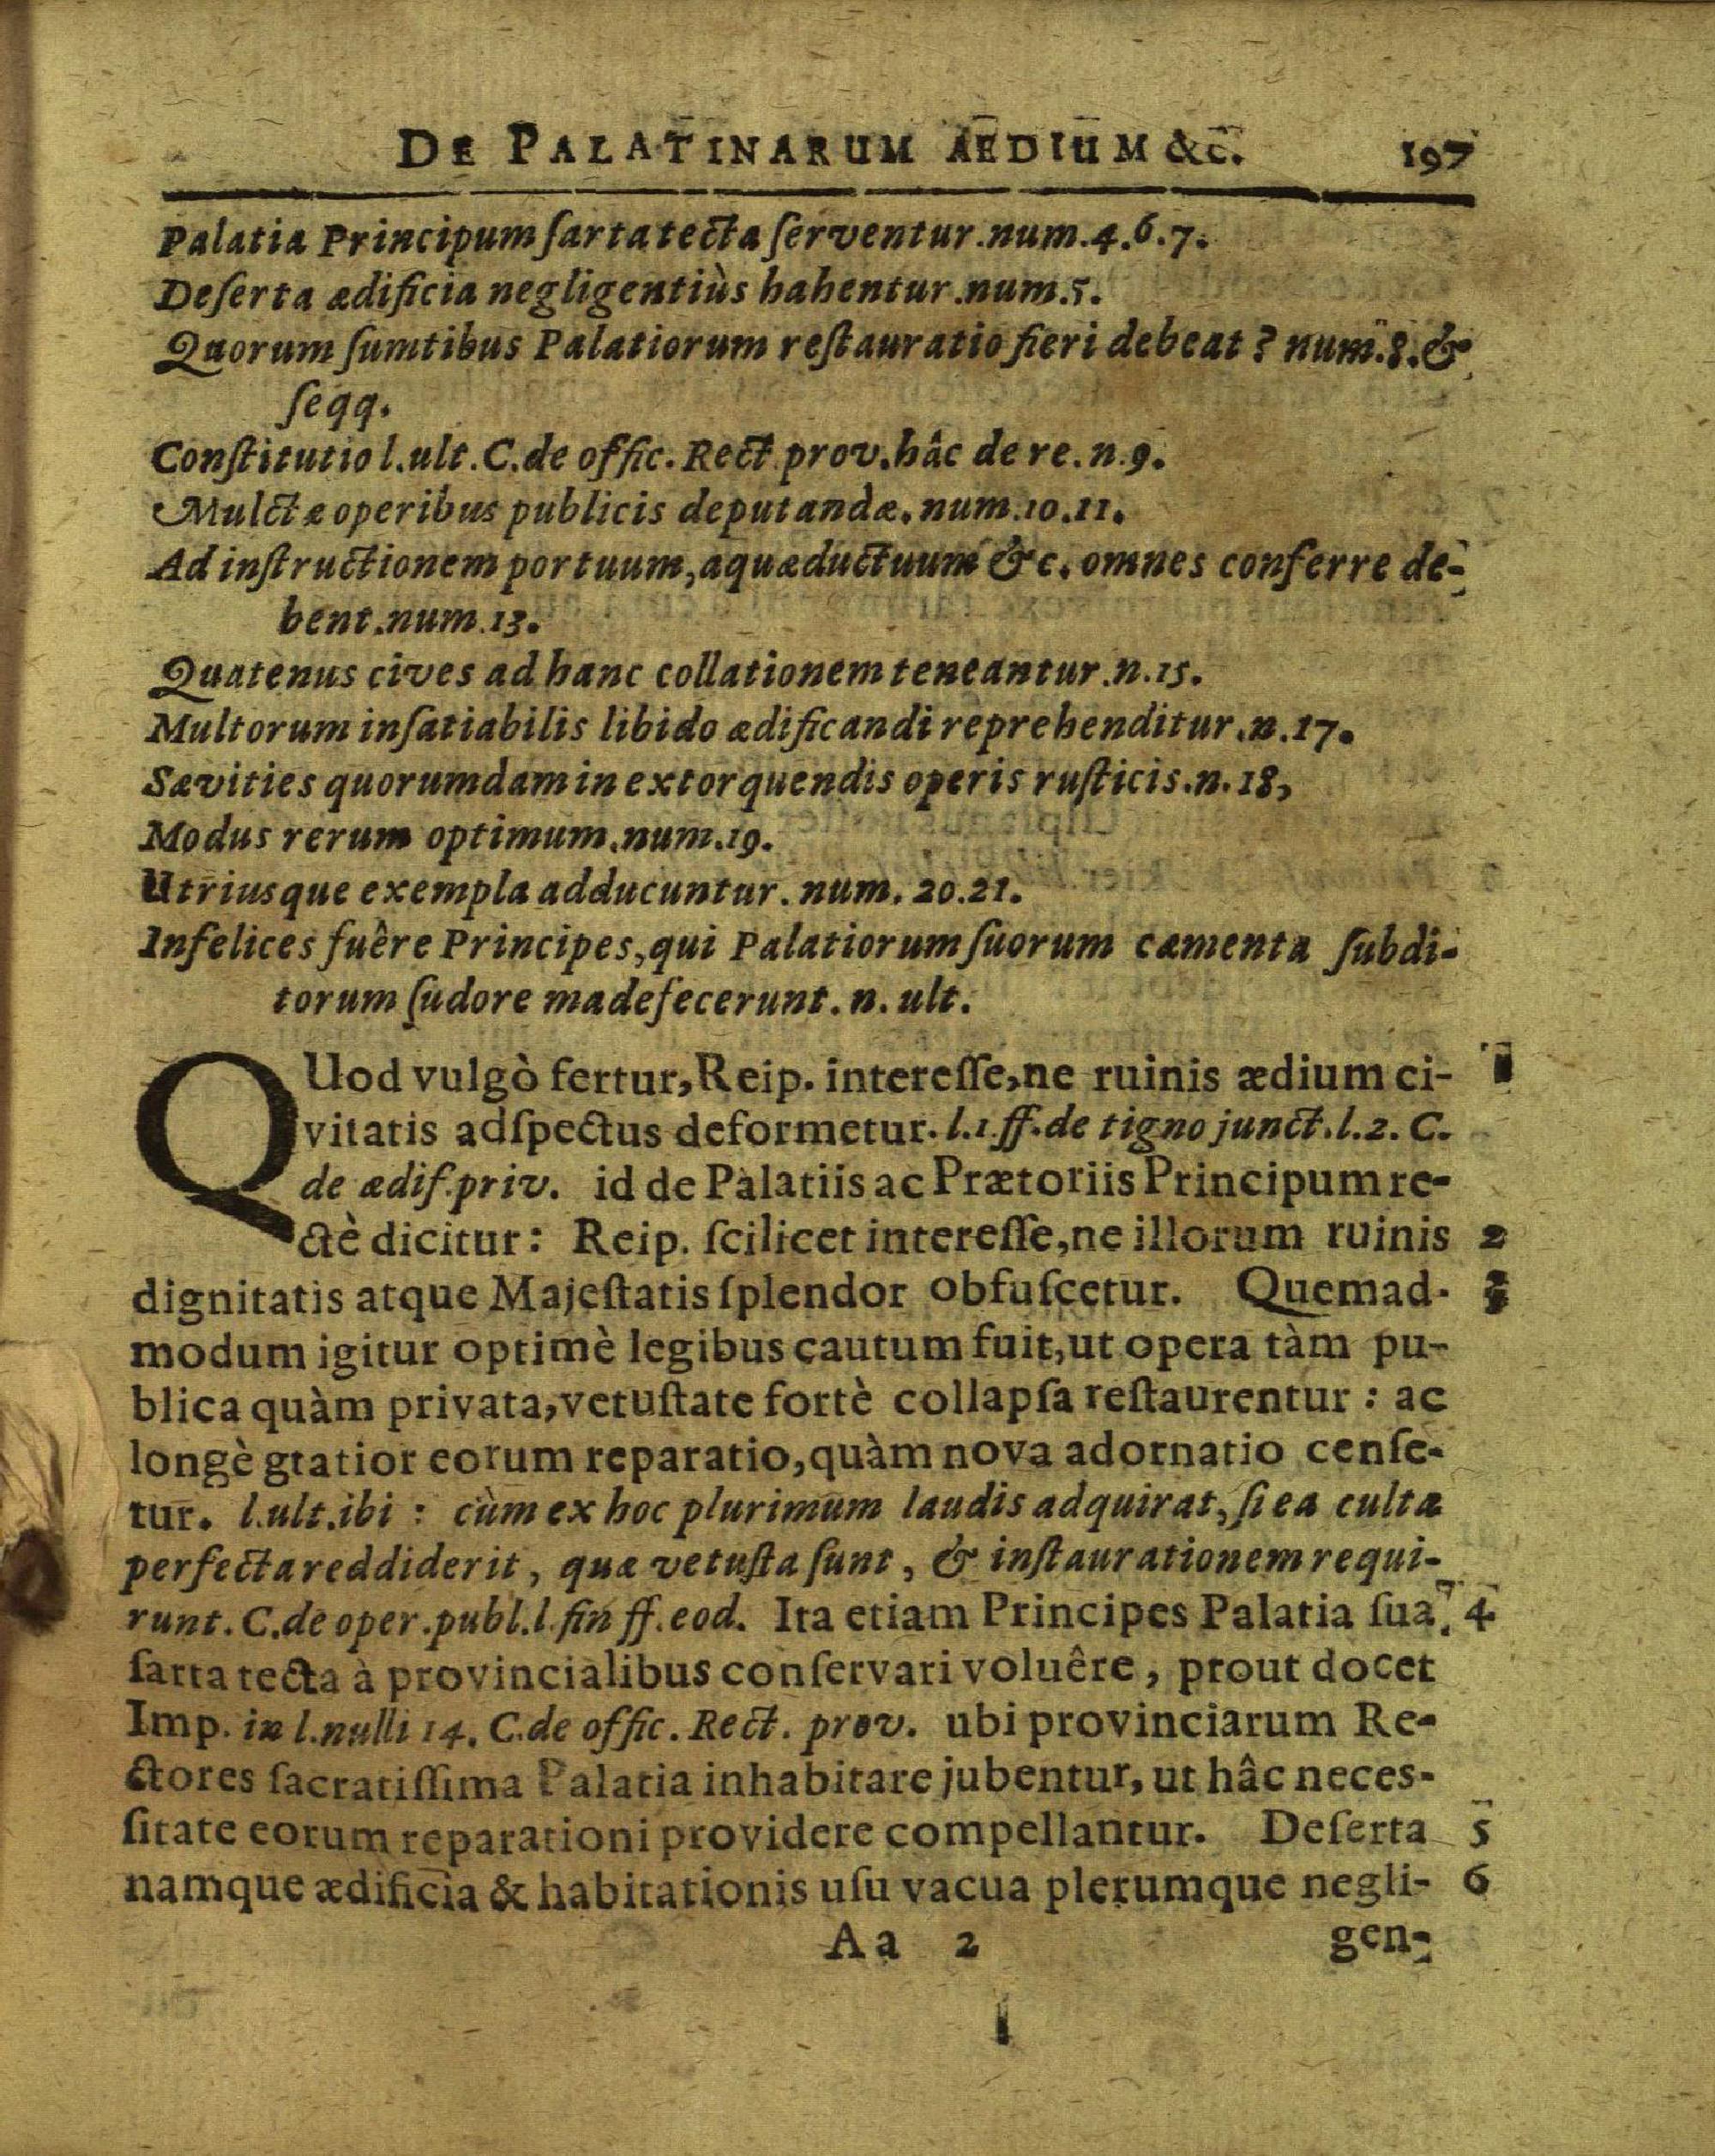 DE PALATINARUM ÆDIUM &c. 197
Palatia Principum ſarta tecta ſerventur. num. 4. 6. 7.
Deſerta ædificia negligentiùs hahentur. num. 5.
Quorum ſumtibus Palatiorum reſtauratio fieri debeat? num. 8. &
ſeqq.
Conſtitutio l. ult. C. de offic. Rect. prov. hâc de re. n. 9.
Mulctæ operibus publicis deputandæ. num. 10. 11.
Ad inſtructionem portuum, aquæductuum &c. omnes conferre de-
bent. num. 13.
Quatenus cives ad hanc collationem teneantur. n. 15.
Multorum inſatiabilis libido ædificandi reprehenditur. n. 17.
Sævities quorumdam in extorquendis operis ruſticis. n. 18,
Modus rerum optimum. num. 19.
Utriusque exempla adducuntur. num. 20. 21.
Infelices fuêre Principes, qui Palatiorum ſuorum cæmenta ſubdi-
torum ſudore madefecerunt. n. ult.
QUod vulgò fertur, Reip. intereſſe, ne ruinis ædium ci- 1
vitatis adſpectus deformetur. l. 1 ff. de tigno junct. l. 2. C.
de ædif. priv. id de Palatiis ac Prætoriis Principum re-
ctè dicitur: Reip. ſcilicet intereſſe, ne illorum ruinis 2
dignitatis atque Majeſtatis ſplendor obfuſcetur. Quemad- 3
modum igitur optimè legibus cautum fuit, ut opera tàm pu-
blica quàm privata, vetuſtate fortè collapſa reſtaurentur: ac
longè gratior eorum reparatio, quàm nova adornatio cenſe-
tur. l. ult. ibi: cùm ex hoc plurimum laudis adquirat, ſi ea culta
perfecta reddiderit, quæ vetuſta ſunt, & inſtaurationem requi-
runt. C. de oper. publ. l. fin ff. eod. Ita etiam Principes Palatia ſua 4
ſarta tecta à provincialibus conſervari voluêre, prout docet
Imp. in l. nulli 14. C. de offic. Rect. prov. ubi provinciarum Re-
ctores ſacratiſſima Palatia inhabitare jubentur, ut hâc neces-
ſitate eorum reparationi providere compellantur. Deſerta 5
namque ædificia & habitationis uſu vacua plerumque negli- 6
Aa 2 gen-